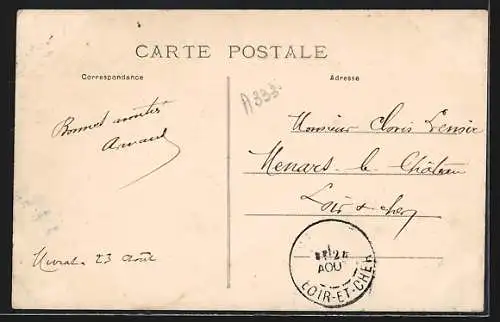 CARTE POSTALE
Correspondance
Adresse
A333
Bonnes amitiés
Arnaud
23 Août
Monsieur Clovis Lenoir
Menars-le-Château
Loir & Cher
24
AOU
LOIR-ET-CHER